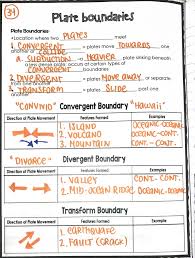 34
Plate boundaries
Plate Boundaries
•Location where two PLATES meet
1. CONVERGENT - plates move TOWARDS one
another or COLLIDE
a. SUBDUCTION - HEAVIER plate sinking beneath
a less dense plate; occurs at certain types of
CONVERGENT boundaries
2. DIVERGENT - plates MOVE AWAY, or separate
3. TRANSFORM - plates SLIDE past one
another
"COVID" Convergent Boundary "Hawaii"
Direction of Plate Movement Features Formed Examples
1. ISLAND OCEANIC-OCEANIC
2. VOLCANO OCEANIC-CONT.
3. MOUNTAIN CONT. - CONT.
"DIVORCE" Divergent Boundary
Direction of Plate Movement Features Formed Examples
1. VALLEY CONT. - CONT.
2. MID-OCEAN RIDGE OCEANIC-OCEANIC
Transform Boundary
Direction of Plate Movement Features Formed Examples
1. EARTHQUAKE
2. FAULT (CRACK)